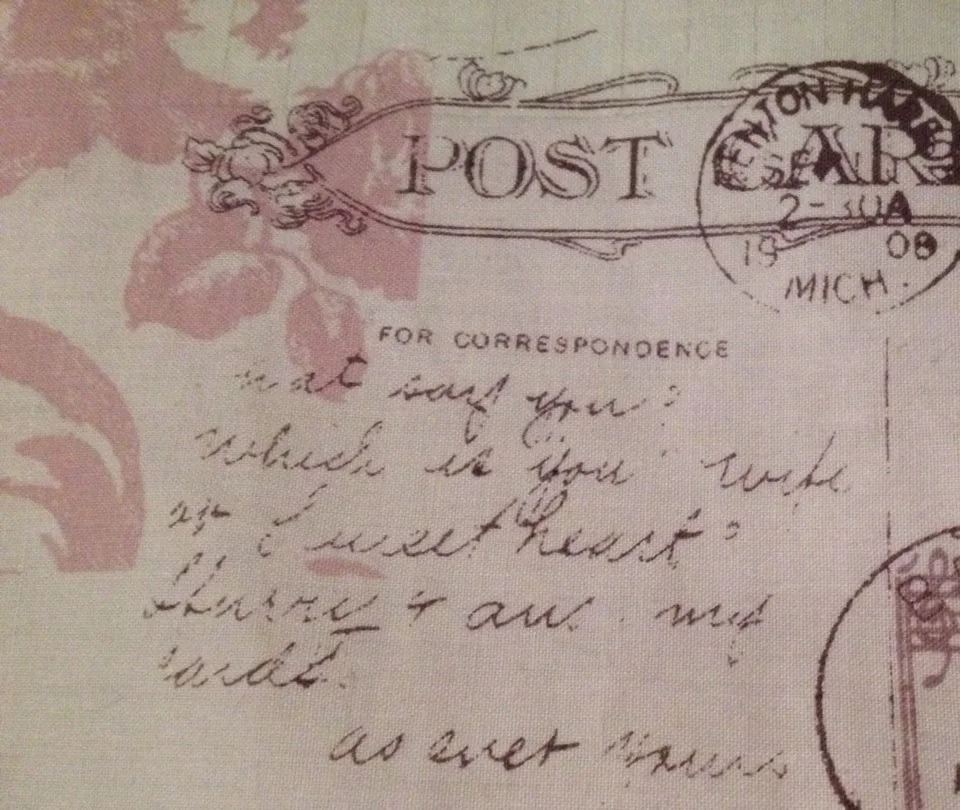 POST CAR
BENTON HARBOR
SEP
2-30A
19 08
MICH.
FOR CORRESPONDENCE
what say you?
Which is you wife
or Sweetheart?
Hurry & ans. my
cards.
as ever yours